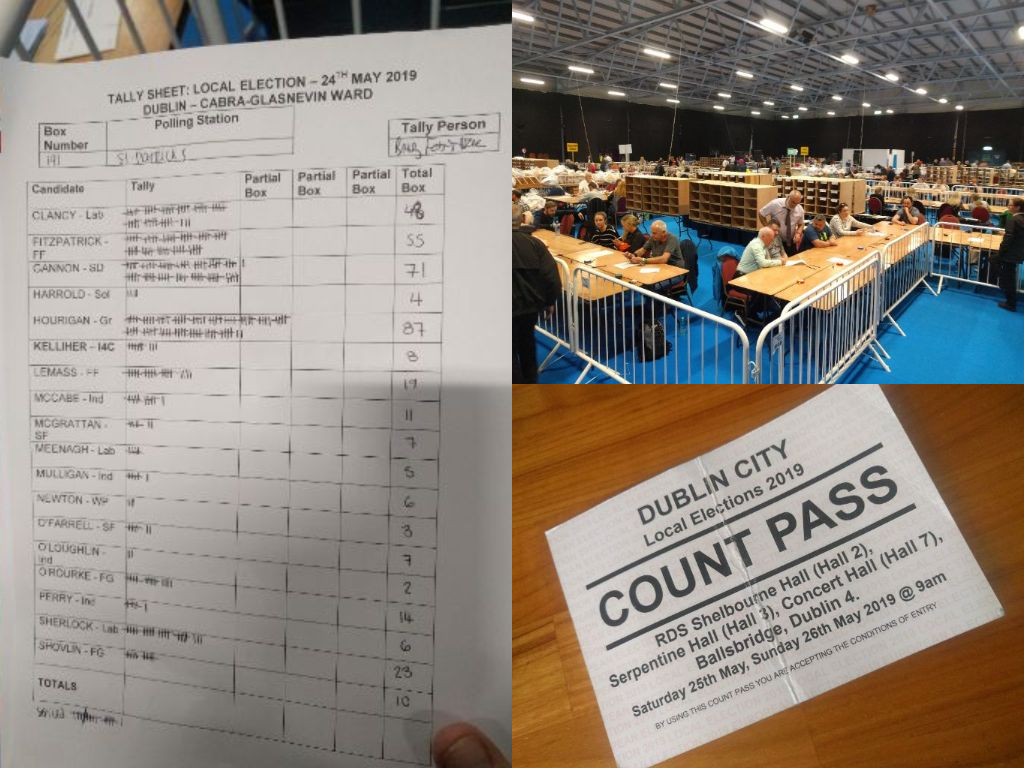 TALLY SHEET: LOCAL ELECTION – 24TH MAY 2019
DUBLIN – CABRA-GLASNEVIN WARD
Box Number
Polling Station
Tally Person
191
St Patricks
Candidate Tally Partial Box Partial Box Partial Box Total Box
CLANCY - Lab 48
FITZPATRICK - FF 55
CANNON - SD 71
HARROLD - Sol 4
HOURIGAN - Gr 87
KELLIHER - I4C 8
LEMASS - FF 19
MCCABE - Ind 11
MCGRATTAN - SF 7
MEENAGH - Lab 5
MULLIGAN - Ind 6
NEWTON - WP 3
O'FARRELL - SF 7
O'LOUGHLIN - Ind 2
O'ROURKE - FG 14
PERRY - Ind 6
SHERLOCK - Lab 23
SHOVLIN - FG 10
TOTALS
DUBLIN CITY
Local Elections 2019
COUNT PASS
RDS Shelbourne Hall (Hall 2),
Serpentine Hall (Hall 3), Concert Hall (Hall 7),
Ballsbridge, Dublin 4.
Saturday 25th May, Sunday 26th May 2019 @ 9am
BY USING THIS COUNT PASS YOU ARE ACCEPTING THE CONDITIONS OF ENTRY